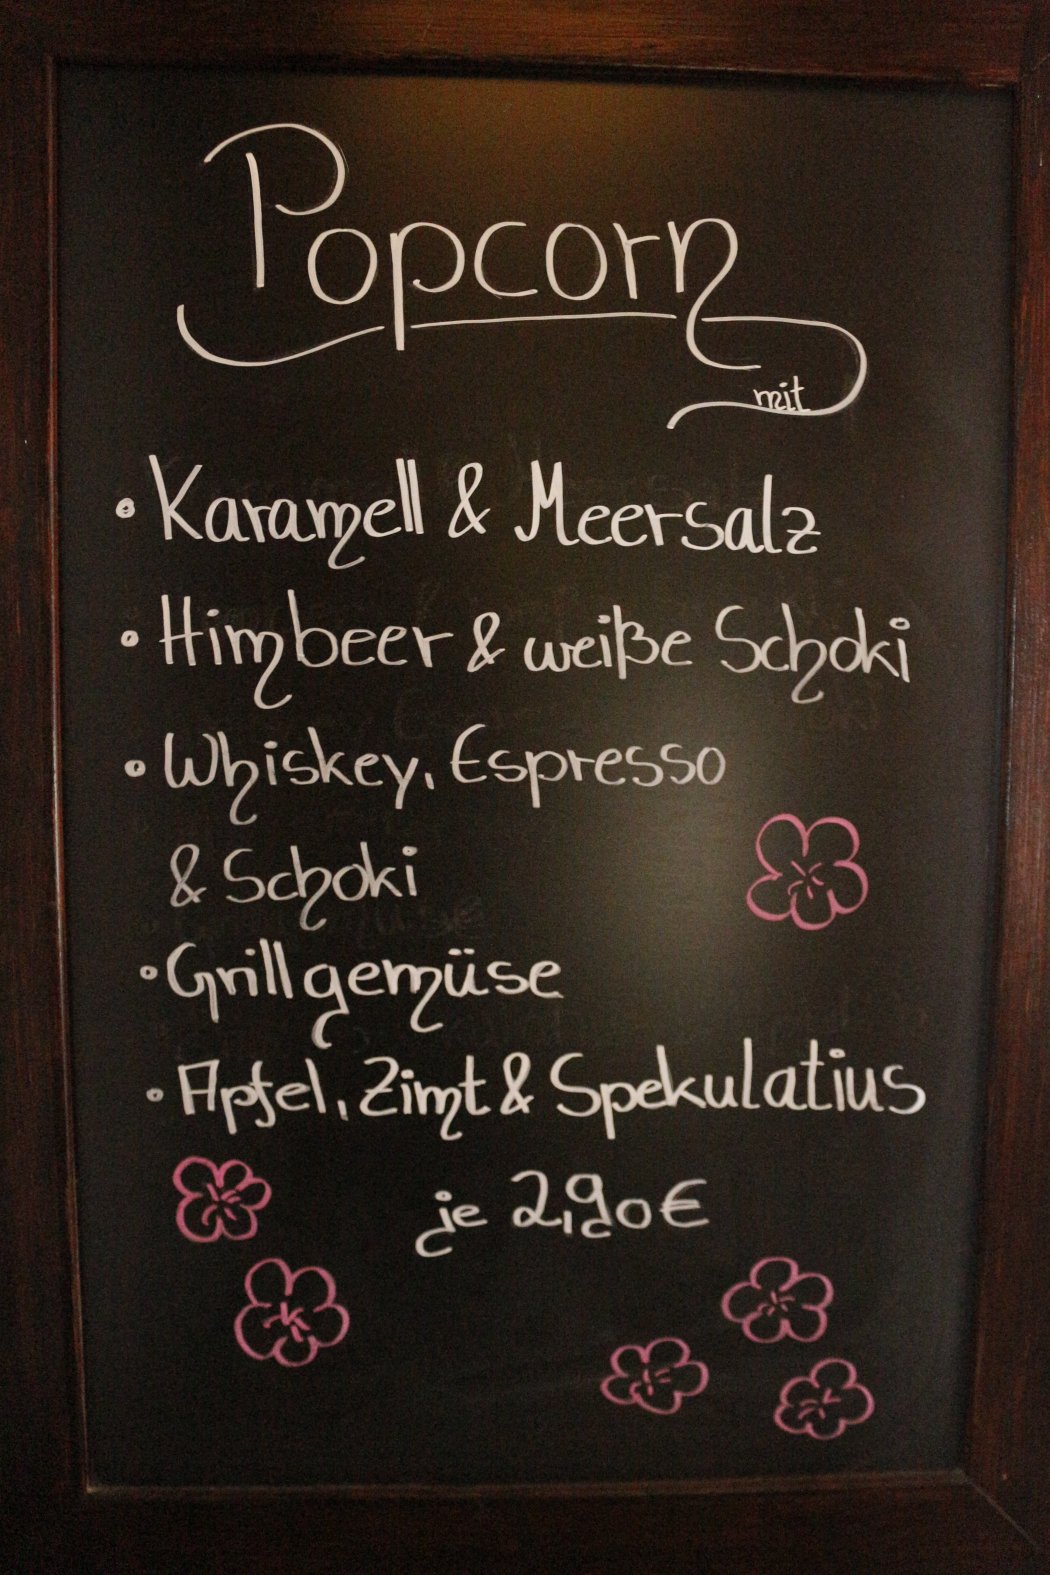 Popcorn
mit
• Karamell & Meersalz
• Himbeer & weiße Schoki
• Whiskey, Espresso
& Schoki
• Grillgemüse
• Apfel, Zimt & Spekulatius
je 2,90€